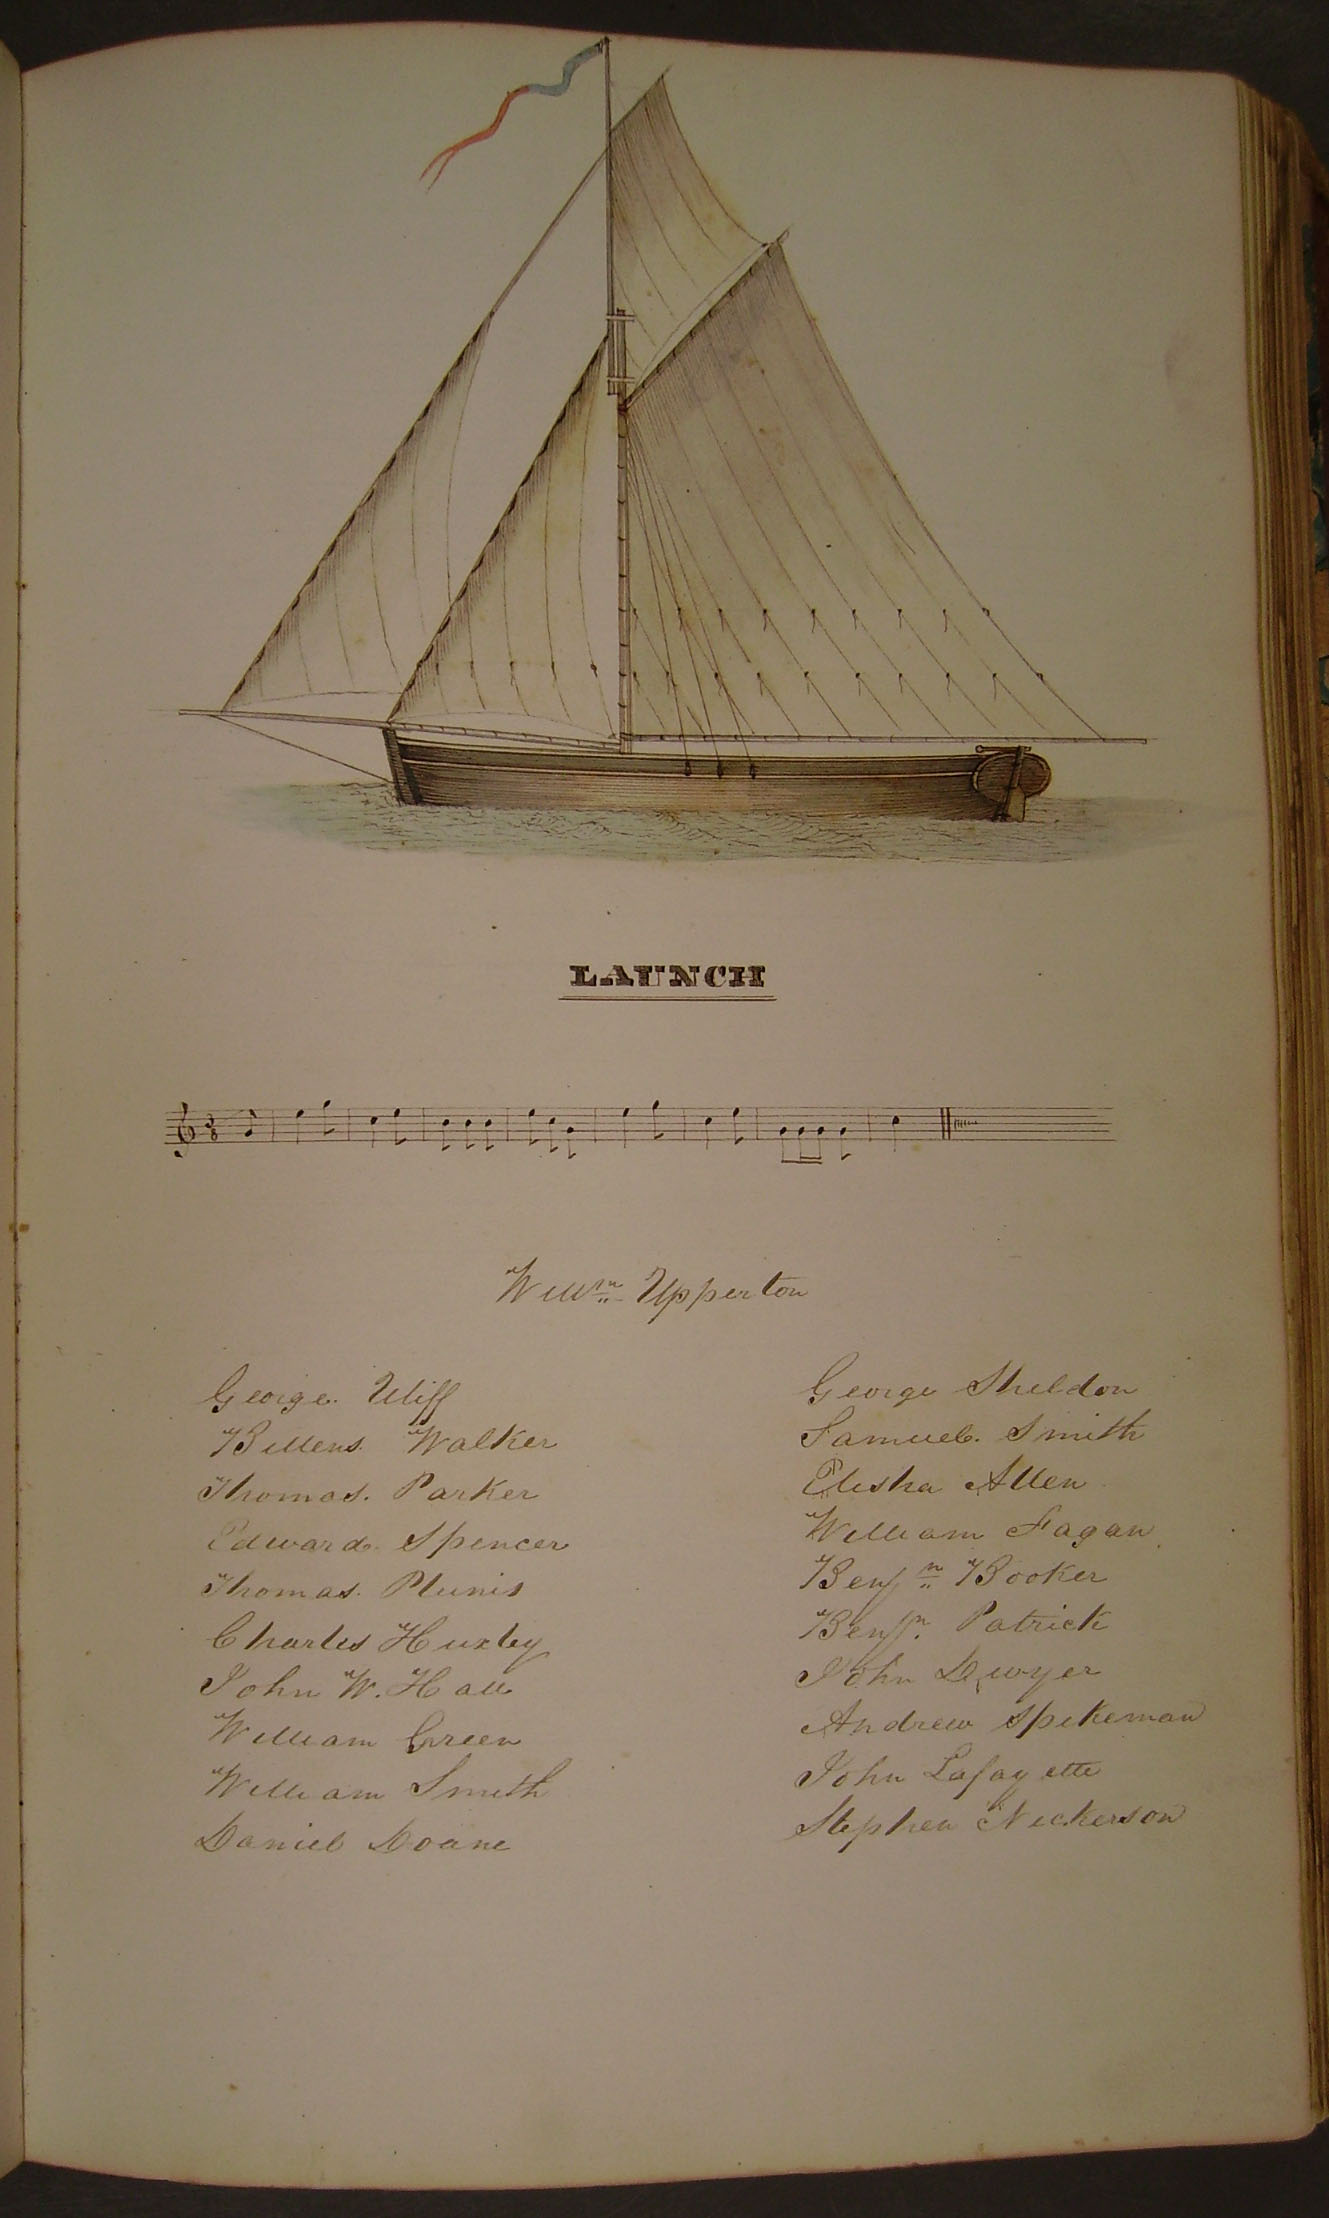 LAUNCH
3/8
Willm Upperton
George. Uliff
Billens. Walker
Thomas. Parker
Edward. Spencer
Thomas.
Charles Huxley
John W. Hall
William Green
William Smith
Daniel Doane
George Sheldon
Samuel. Smith
Elisha Allen
William Fagan
Benjn Booker
Benjn. Patrick
John Dwyer
Andrew Spikeman
John Lafayette
Stephen Nickerson